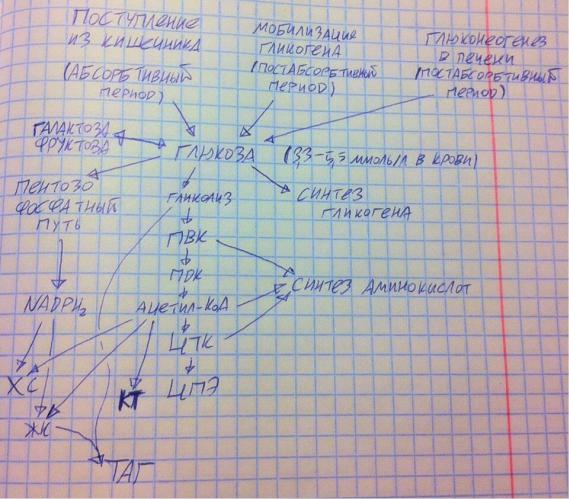 ПОСТУПЛЕНИЕ
ИЗ КИШЕЧНИКА
(АБСОРБТИВНЫЙ
ПЕРИОД)
МОБИЛИЗАЦИЯ
ГЛИКОГЕНА
(ПОСТАБСОРБТИВНЫЙ
ПЕРИОД)
ГЛЮКОНЕОГЕНЕЗ
В ПЕЧЕНИ
(ПОСТАБСОРБТИВНЫЙ
ПЕРИОД)
ГАЛАКТОЗА
ФРУКТОЗА
ГЛЮКОЗА (3,3-5,5 ММОЛЬ/Л В КРОВИ)
ПЕНТОЗО
ФОСФАТНЫЙ
ПУТЬ
ГЛИКОЛИЗ
СИНТЕЗ
ГЛИКОГЕНА
ПВК
ПДК
СИНТЕЗ АМИНОКИСЛОТ
NADPH2
АЦЕТИЛ-КоА
ЦТК
ХС
КТ
ЦПЭ
ЖК
ТАГ